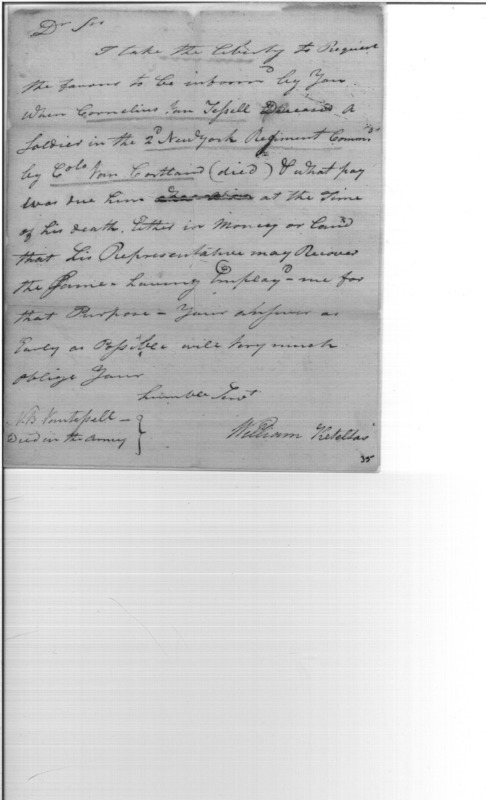 Dr Sir
I take the liberty to Request
the favour to be inform'd by You
When Cornelius Van Tessell Deceased a
Soldier in the 2d New York Regiment Comm'd
by Colo Van Cortland (died) & what pay
was due him at the Time
of his death. Either in Money or Land
that his Representative may Recover
the Same - having Employ'd - me for
that Purpose - Your answer as
Early as Possible will Very much
oblige Your
humble Servt
William Keteltas
N.B Vantessell -
Died in the Army
35